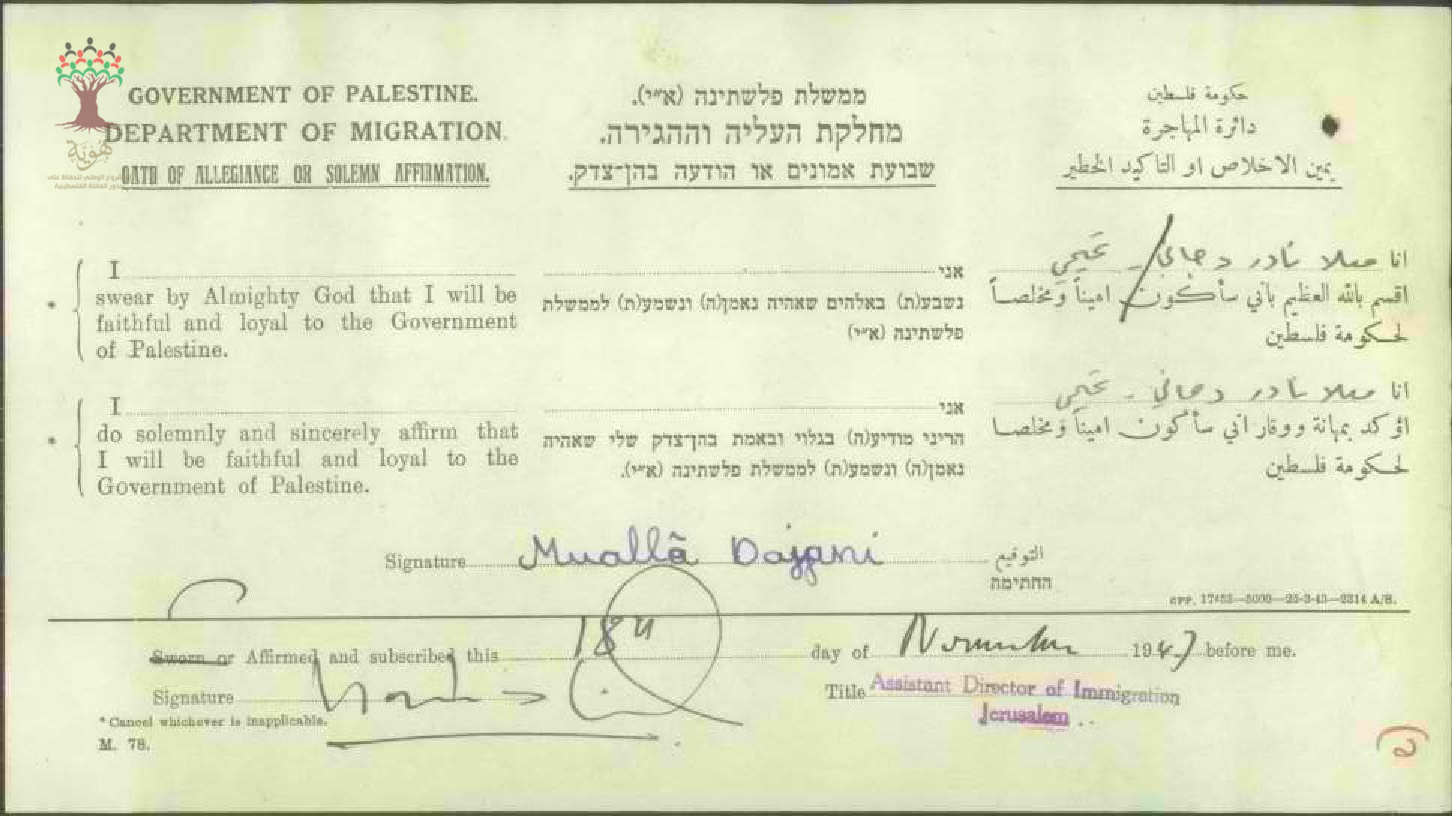 GOVERNMENT OF PALESTINE.
DEPARTMENT OF MIGRATION.
OATH OF ALLEGIANCE OR SOLEMN AFFIRMATION.
ממשלת פלשתינה (א״י).
מחלקת העליה וההגירה.
שבועת אמונים או הודעה בהן־צדק.
حكومة فلسطين
دائرة المهاجرة
يمين الاخلاص او التأكيد الخطير
هوية
* I
swear by Almighty God that I will be
faithful and loyal to the Government
of Palestine.
אני
נשבע(ת) באלהים שאהיה נאמן(ה) ונשמע(ת) לממשלת
פלשתינה (א״י)
انا معلا نادر دجاني
اقسم بالله العظيم بأني سأكون اميناً ومخلصاً
لحكومة فلسطين
* I
do solemnly and sincerely affirm that
I will be faithful and loyal to the
Government of Palestine.
אני
הריני מודיע(ה) בגלוי ובאמת בהן־צדק שלי שאהיה
נאמן(ה) ונשמע(ת) לממשלת פלשתינה (א״י).
انا معلا نادر دجاني
اؤكد بمهانة ووقار اني سأكون اميناً ومخلصا
لحكومة فلسطين
Signature Muallâ Dajjani التوقيع
החתימה
GPP. 17453—5000—25-3-43—2314 A/B.
Sworn or Affirmed and subscribed this 18th day of November 1947 before me.
Signature
Title Assistant Director of Immigration
Jerusalem
* Cancel whichever is inapplicable.
M. 78.